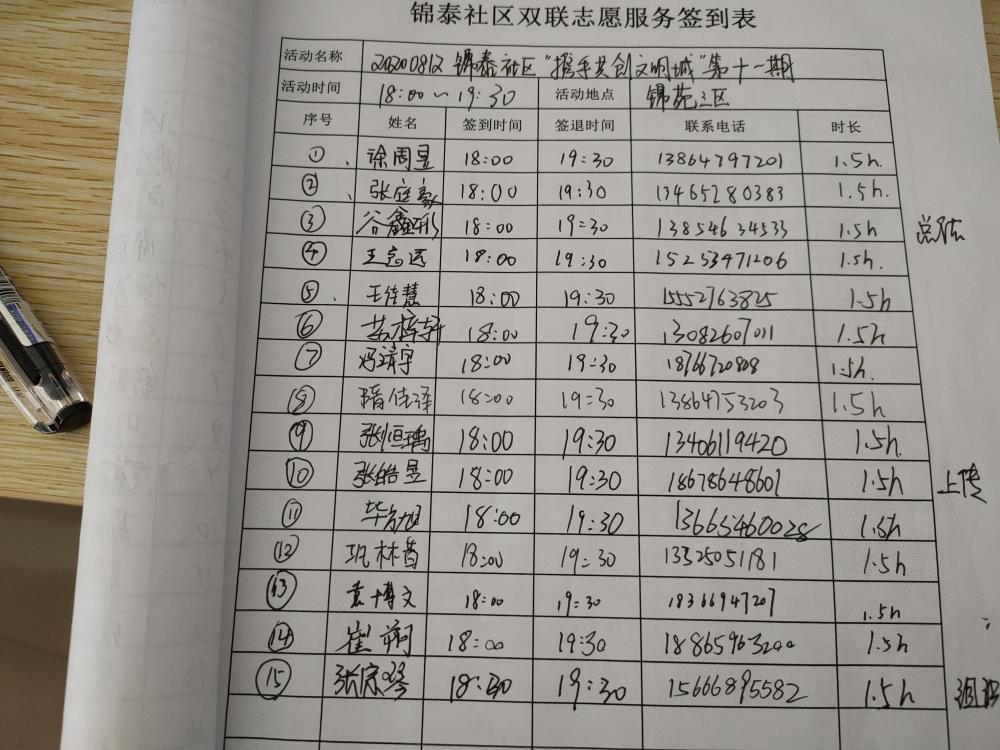 锦泰社区双联志愿服务签到表
活动名称 20200812 锦泰社区"携手共创文明城"第十一期
活动时间 18:00～19:30 活动地点 锦苑三区
序号 姓名 签到时间 签退时间 联系电话 时长
① 徐周昱 18:00 19:30 13864797201 1.5h.
② 张庭豪 18:00 19:30 13465280383 1.5h.
③ 谷鑫彤 18:00 19:30 13854634533 1.5h 总结
④ 王志远 18:00 19:30 15253471206 1.5h.
⑤ 王佳慧 18:00 19:30 15552763825 1.5h
⑥ 苏梓轩 18:00 19:30 13082607011 1.5h
⑦ 冯靖宇 18:00 19:30 18766720808 1.5h.
⑧ 隋佳泽 18:00 19:30 13864753203 1.5h
⑨ 张恒瑀 18:00 19:30 13406119420 1.5h
⑩ 张皓昱 18:00 19:30 18678648607 1.5h 上传
⑪ 18:00 19:30 13665460028 1.5h
⑫ 巩林昔 18:00 19:30 13325051181 1.5h
⑬ 袁博文 18:00 19:30 18366947207 1.5h
⑭ 崔朔 18:00 19:30 18865963200 1.5h
⑮ 18:30 19:30 15666895582 1.5h